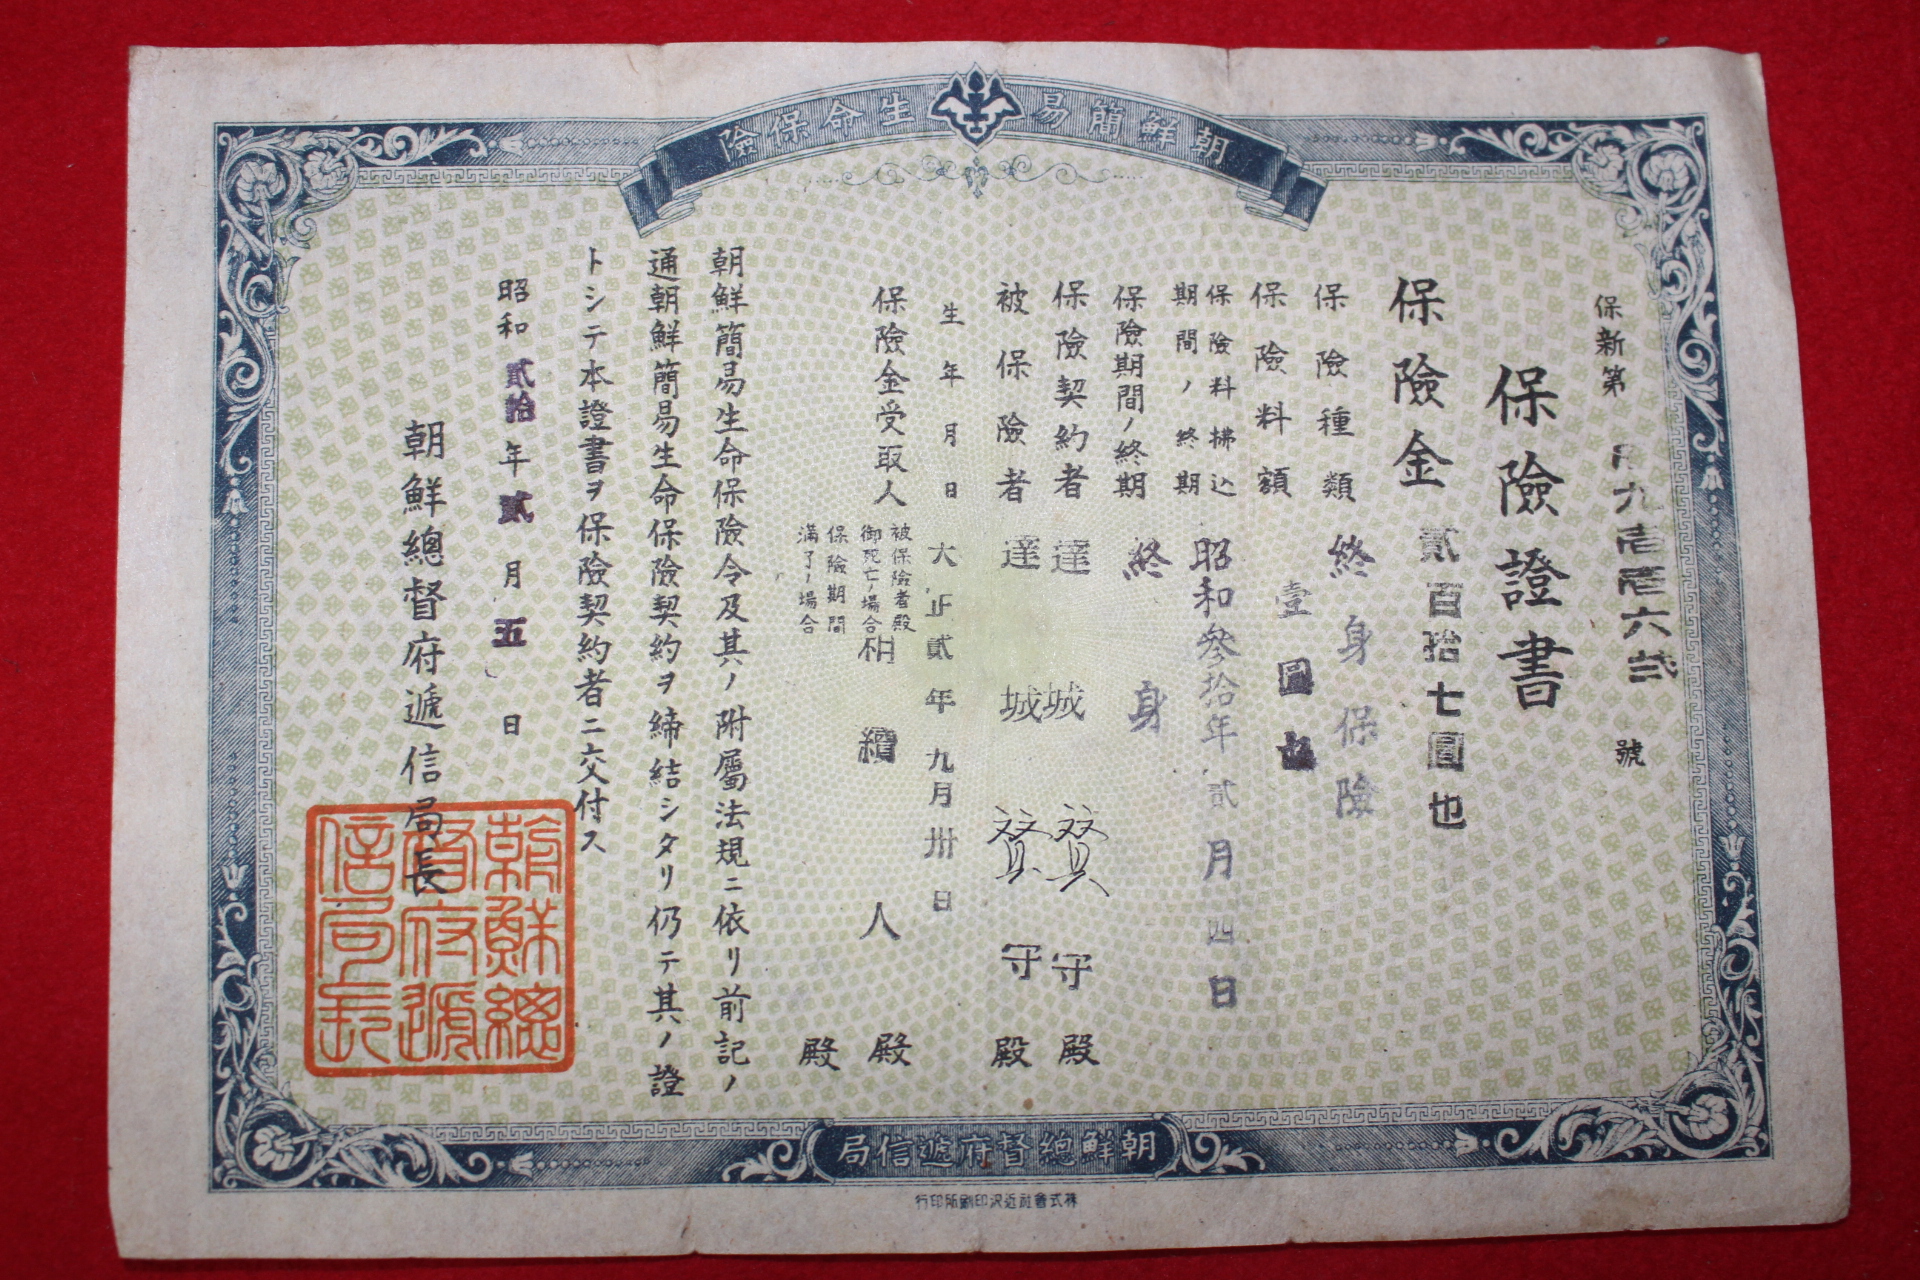 朝鮮簡易生命保險
保新第 九壱壱六弐 號
保險證書
保險金 貳百拾七圓也
保險種類 終身保險
保險料額 壹圓也
保險料拂込期間ノ終期 昭和參拾年貳月四日
保險期間ノ終期 終身
保險契約者 達城 贊守 殿
被保險者 達城 贊守 殿
生年月日 大正貳年九月卅日
保險金受取人
被保險者殿御死亡ノ場合 相續人 殿
保險期間滿了ノ場合 殿
朝鮮簡易生命保險令及其ノ附屬法規ニ依リ前記ノ
通朝鮮簡易生命保險契約ヲ締結シタリ仍テ其ノ證
トシテ本證書ヲ保險契約者ニ交付ス
昭和貳拾年貳月五日
朝鮮總督府遞信局長
朝鮮總督府遞信局長
朝鮮總督府遞信局
株式會社近沢印刷所印行